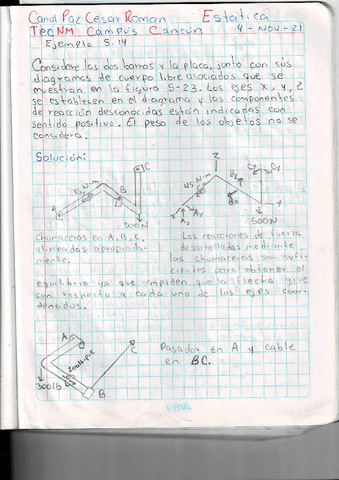 Canul Paz César Román Estatica
TecNM Campus Cancún 4-NOV-21
Ejemplo 5.14
Considere las dos barras y la placa, junto con sus
diagramas de cuerpo libre asociados que se
muestran en la figura 5-23. Los ejes x, y, z
se establecen en el diagrama y los componentes
de reacción desconocidas están indicadas con
sentido positivo. El peso de los objetos no se
considera.
Solución:
C
45 N·m
B
A
500N
Z
45 N·m
Cz
Cy
Bz
Bx
X
Ay
Az
Y
500N
Chumaceras en A, B, C.
alineadas apropiada-
mente.
Las reacciones de fuerza
desarrolladas mediante
las chumaceras son sufi-
cientes para obtener el
equilibrio ya que impiden que la flecha gire
con respecto a cada uno de los ejes coor-
denados.
A
C
200 lb·pie
300 lb
B
Pasador en A y cable
en BC.